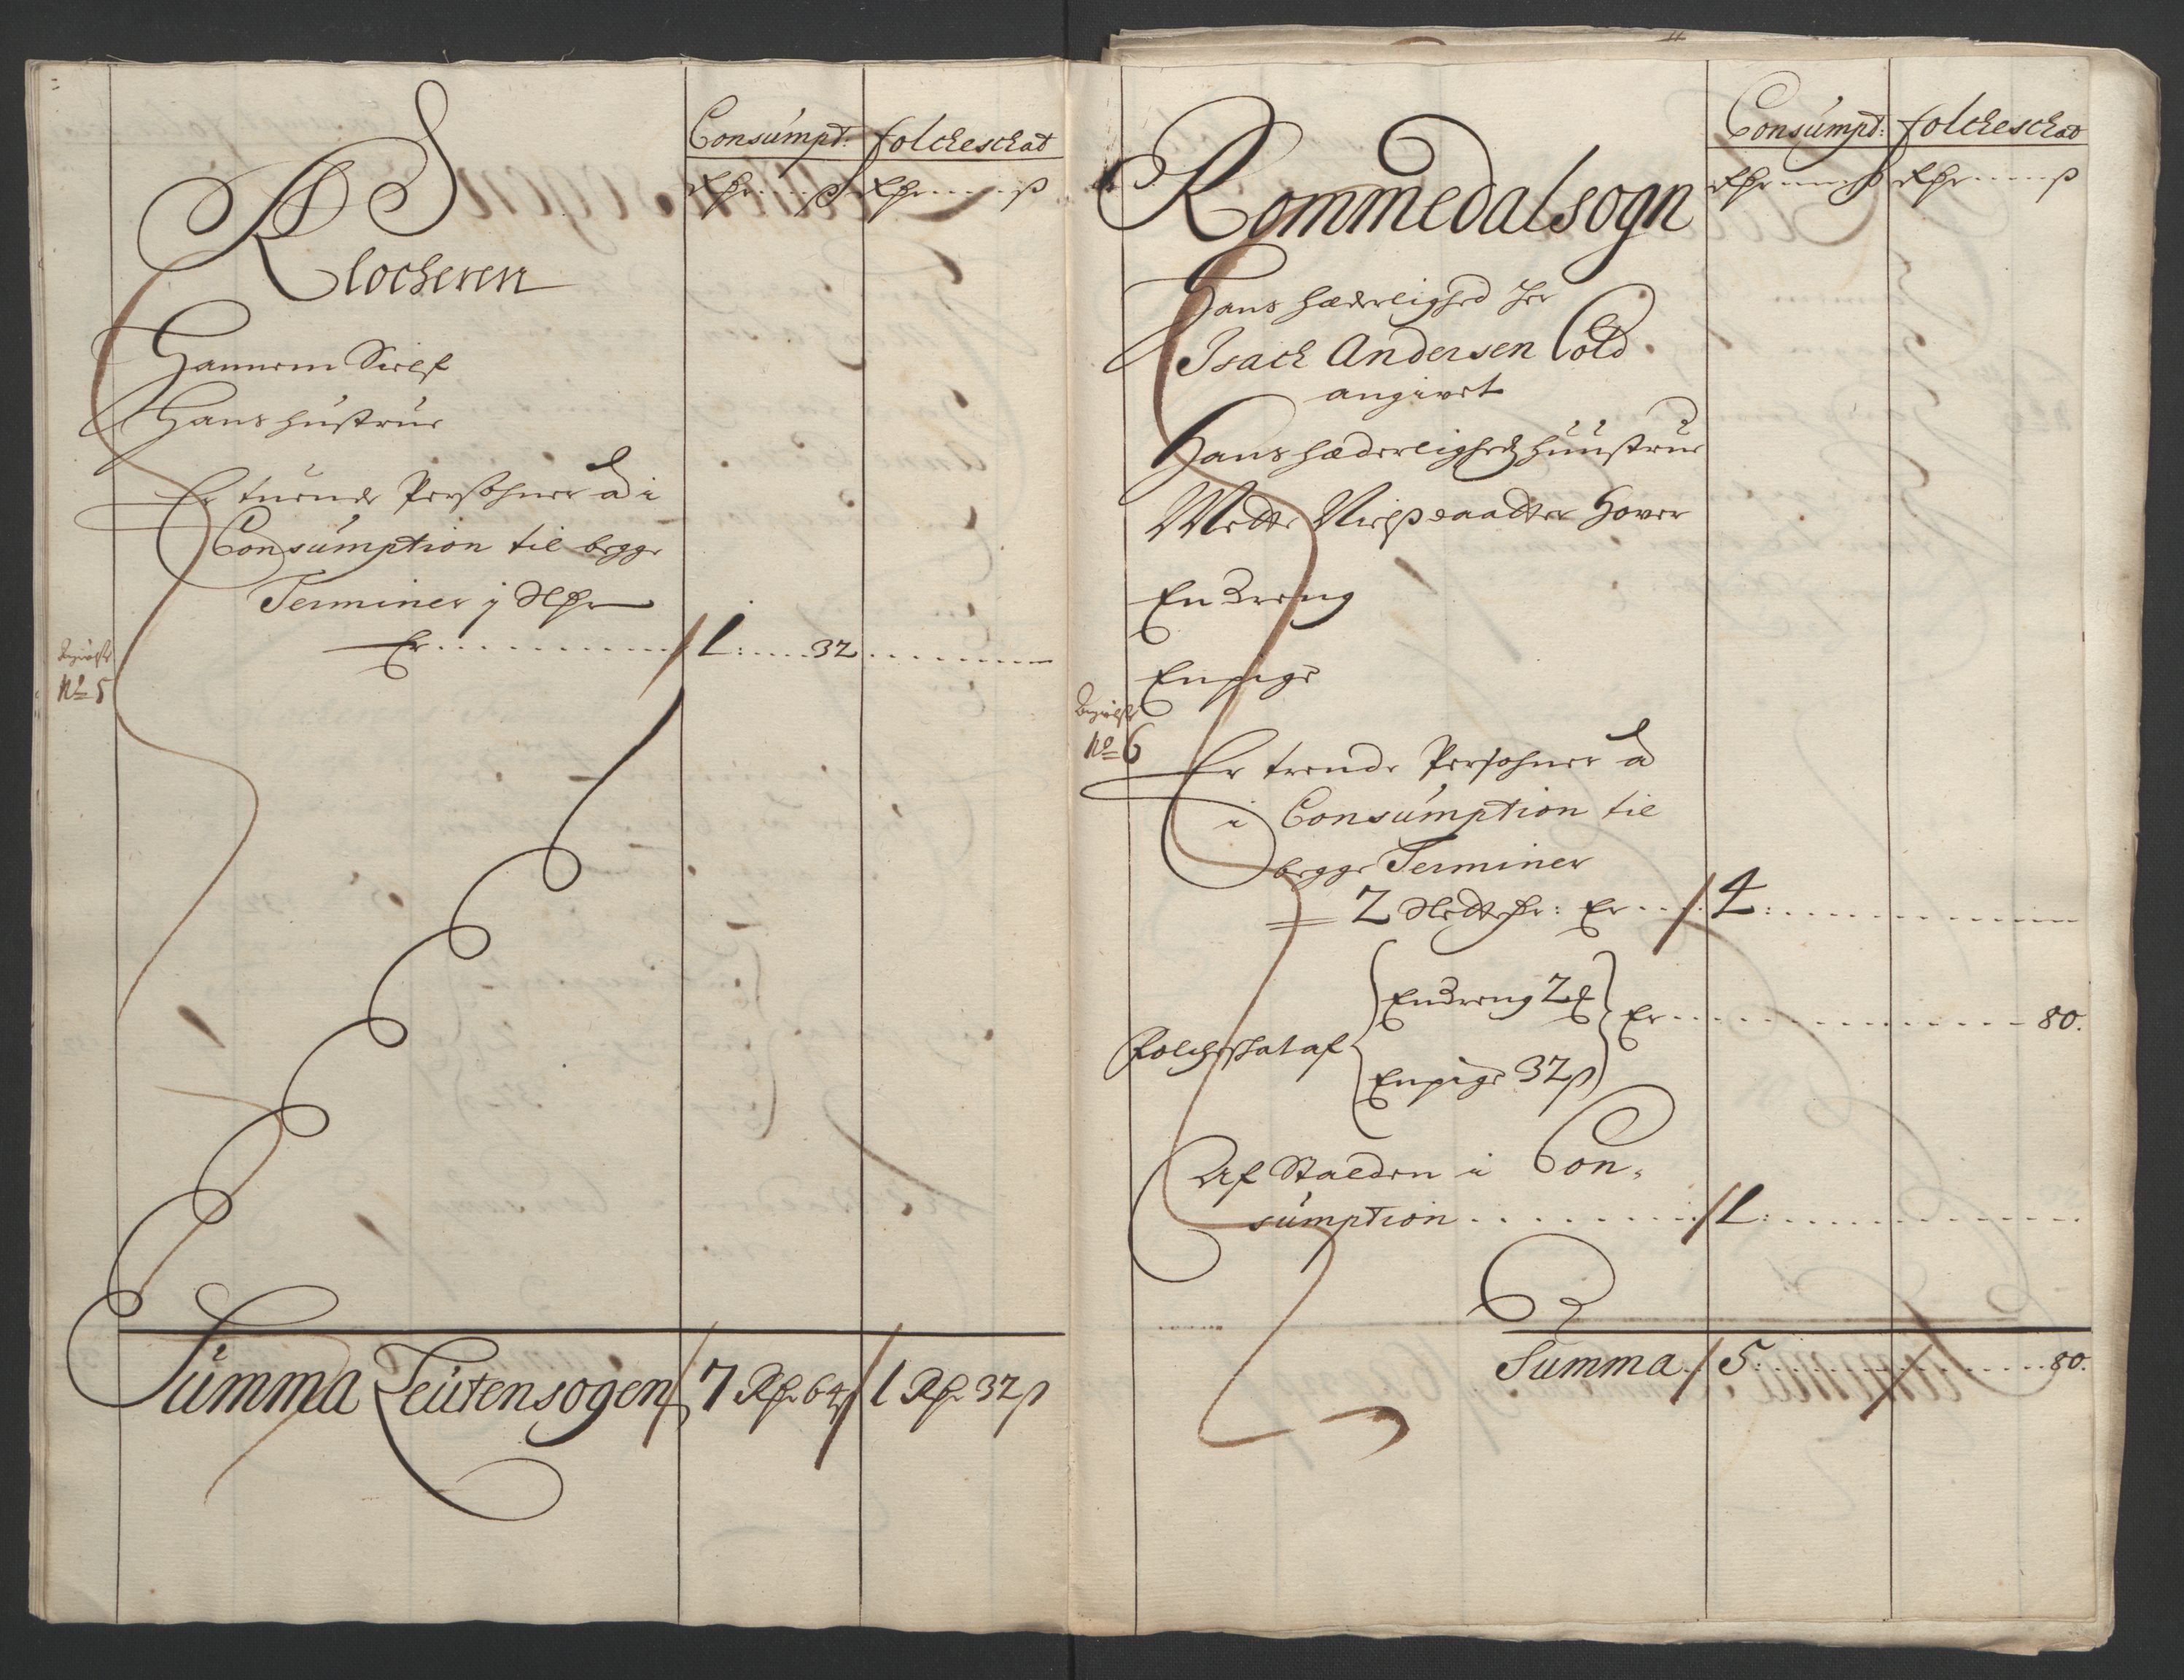 Consumpt: folckeschat
Rdr ß Rdr ß
Klockeren
Hannem Sielf
Hans hustrue
Er tuende Persohner à i
Consumption til begge
Terminer j Rdr
Er 1 32
No 5
Summa Leutensogen 7 Rdr 64 ß 1 Rdr 32 ß
Consumpt: folckeschat
Rdr ß Rdr ß
Rommedalsogn
Hans hæderlighed her
Isach Andersen Cold
angivet
Hans hæderligheds huustrue
Mette Nielßdaatter Hover
En dreng
En pige
No 6
Er trende Persohner à
i Consumption til
begge Terminer
2 Er 4
En dreng 2
Folcheskat af Er 80.
En pige 32 ß
Af Stalden i Con,
sumption 1
Summa 5 80.